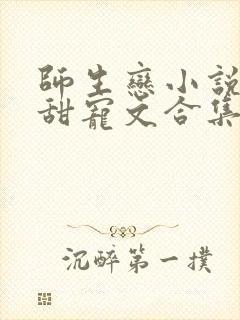 師生戀小說
甜寵文合集
沉醉第一撲